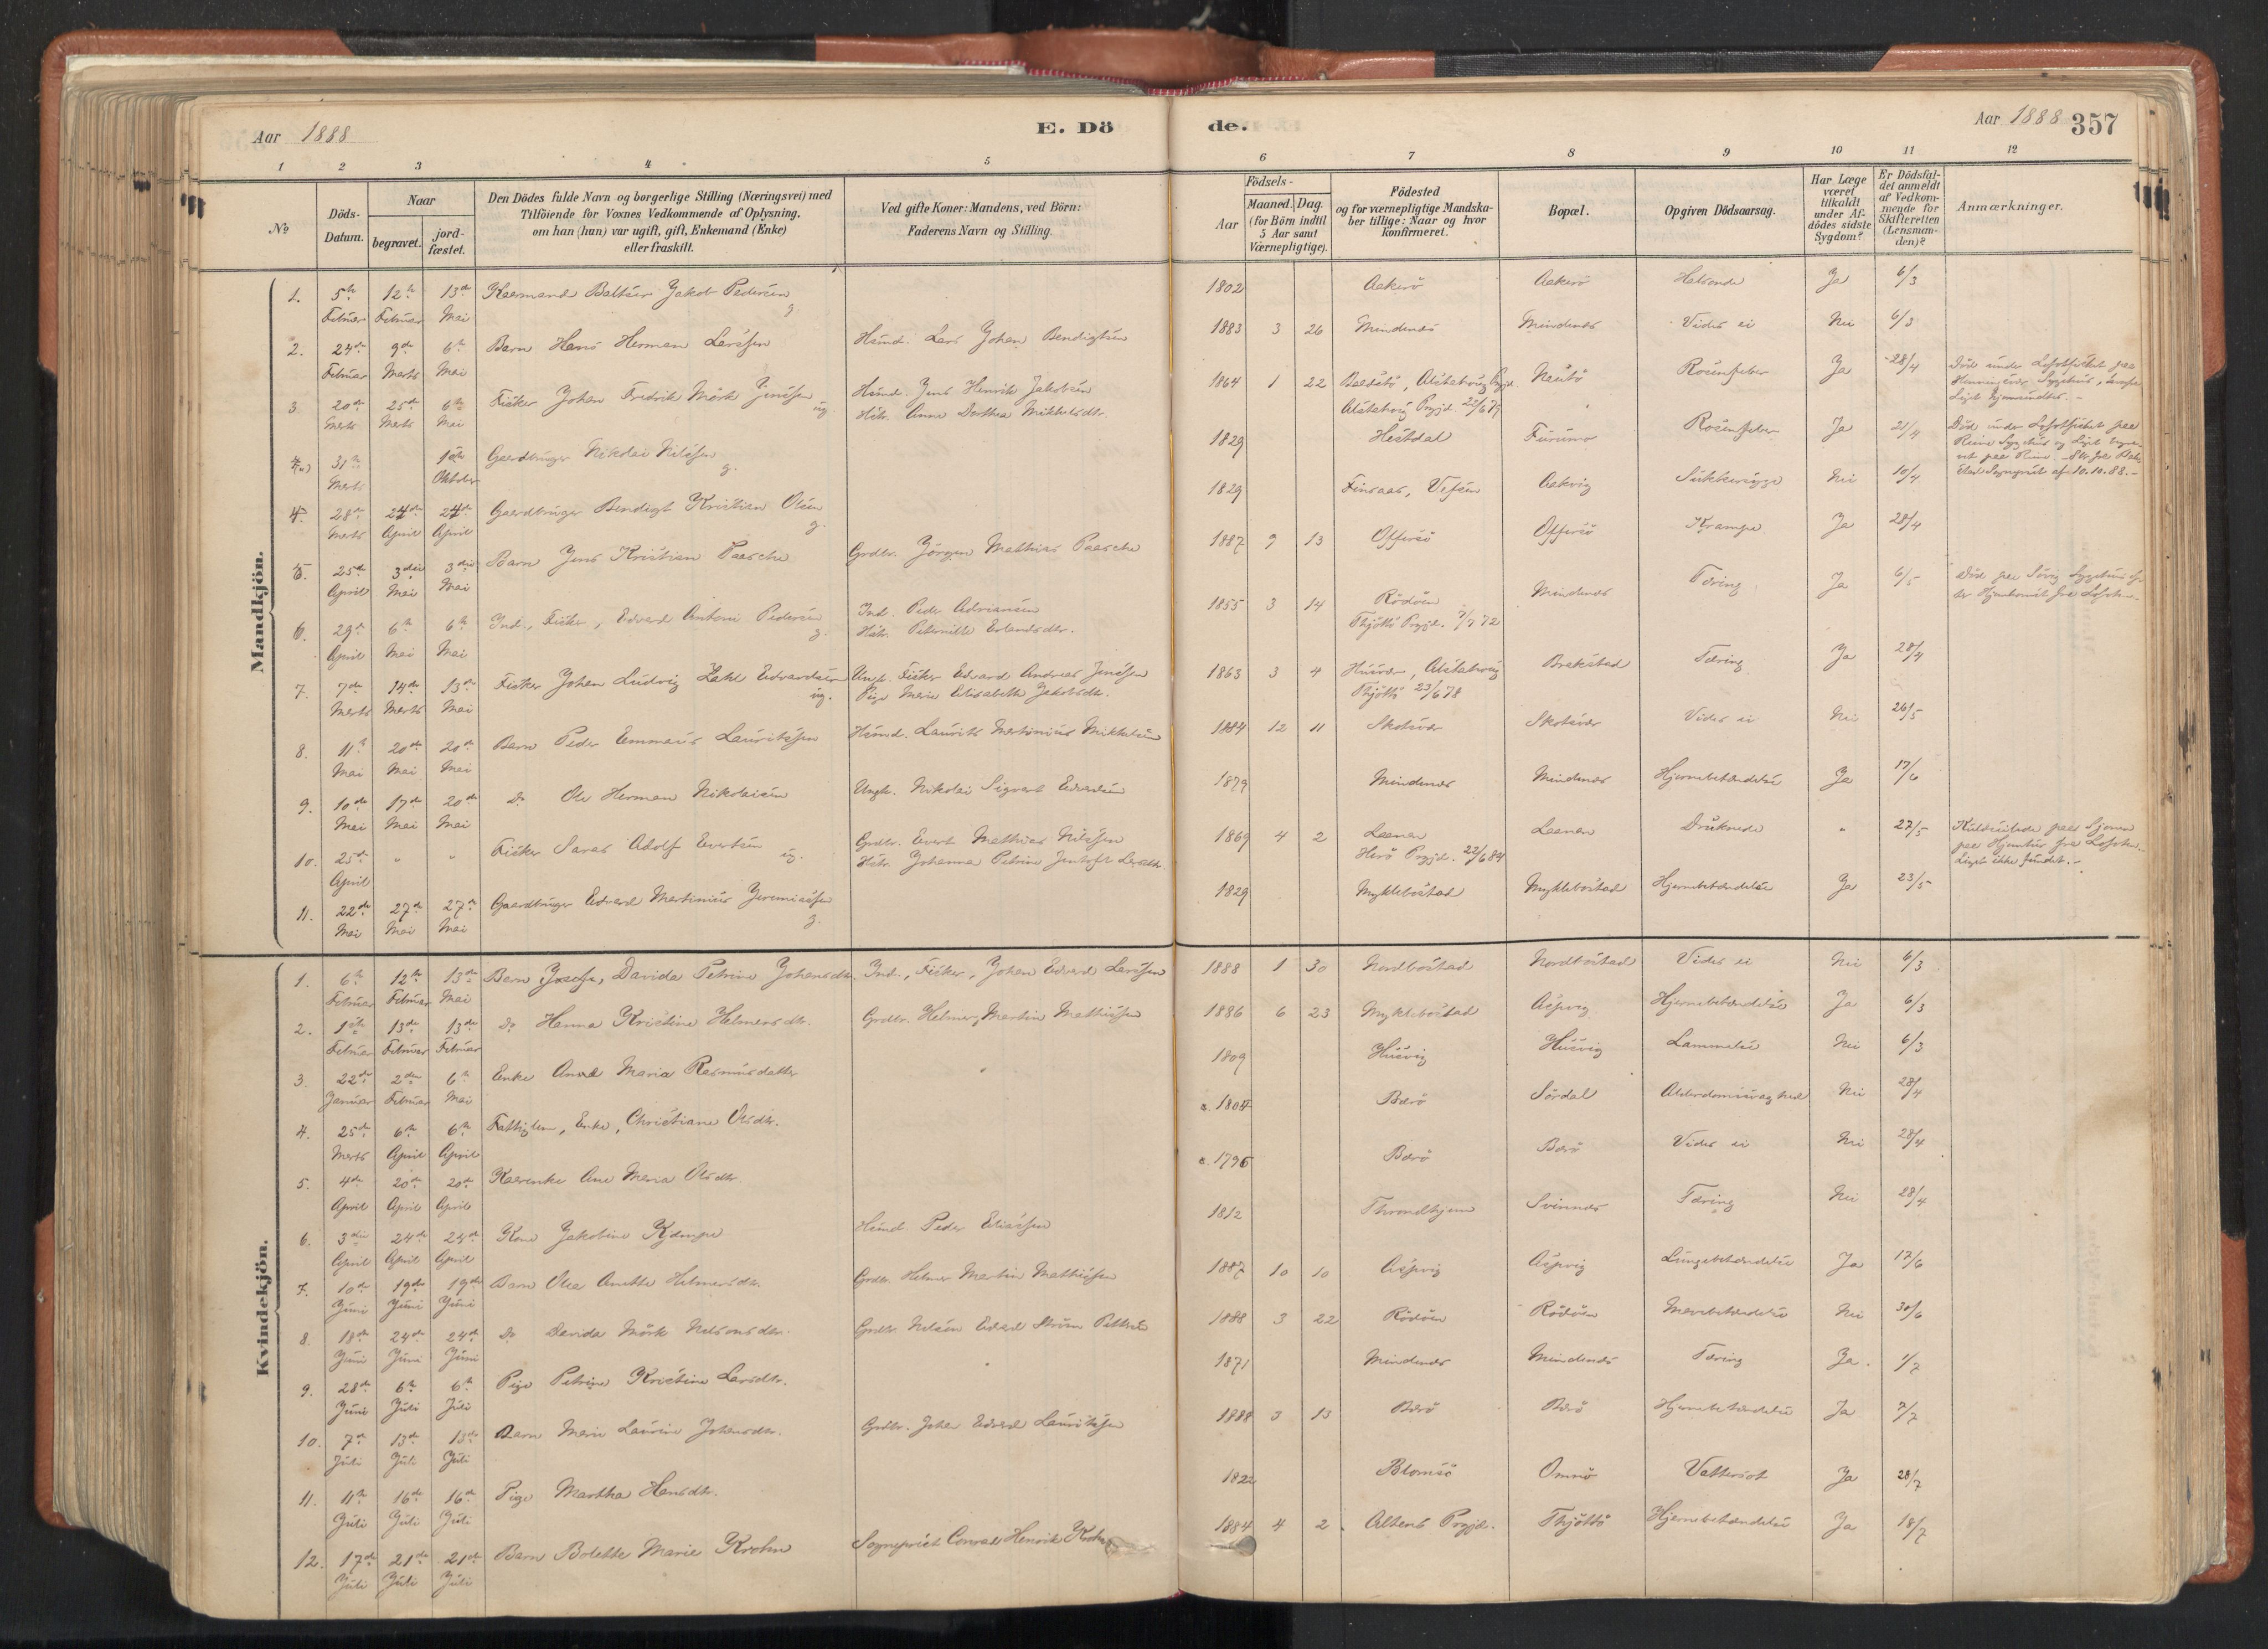 Aar 1888
E. Dö
de.
Aar 1888
357
1 2 3 4 5 6 7 8 9 10 11 12
No
Döds-
Datum.
Naar
begravet.
jord-
fæstet.
Den Dödes fulde Navn og borgerlige Stilling (Næringsvei) med
Tilföiende for Voxnes Vedkommende af Oplysning,
om han (hun) var ugift, gift, Enkemand (Enke)
eller fraskilt.
Ved gifte Koner: Mandens, ved Börn:
Faderens Navn og Stilling.
Födsels-
Aar
Maaned. Dag.
(for Börn indtil
5 Aar samt
Værnepligtige).
Födested
og for værnepligtige Mandska-
ber tillige: Naar og hvor
konfirmeret.
Bopæl.
Opgiven Dödsaarsag.
Har Læge
været
tilkaldt
under Af-
dödes sidste
Sygdom?
Er Dödsfal-
det anmeldt
af Vedkom-
mende for
Skifteretten
(Lensman-
den)?
Anmærkninger.
Mandkjön.
1. 5te Februar 12te Februar 13de Mai Kaarmand Baltser Jakob Pedersen g 1802 Aakerö Aakerö Halsonde Ja 6/3
2. 24de Februar 9de Marts 6te Mai Barn Hans Herman Larssen Husmd. Lars Johan Bendigtsen 1883 3 26 Mindenes Mindenes Vides ei Nei 6/3
3 20de Marts 25de Marts 6te Mai Fisker Johan Fredrik Mörk Jenssen ug. Husmd. Jens Henrik Jakobsen
Hstr. Anne Dorthea Mikkelsdtr. 1864 1 22 Alstahoug Prgjd.
Alstahoug Prgjd. 22/6 79 Rosenfeber Ja 28/4 Död under Lofotfisket paa
Sygehus,
31te Marts Oktober Gaardbruger Nikolai Nilssen g. 1829 Hestdal Furumo Rosenfeber Ja 21/4 Död under Lofotfisket paa
Reine Sygehus og Liget begra-
vet paa Reine. af 10.10.88.-
4. 28de Marts 24de April 24de April Gaardbruger Bendigt Kristian Olsen g. 1829 Finsaas, Vefsen Aakvig Sukkersyge Nei 10/4
5. 25de April 3die Mai 3die Mai Barn Jens Kristian Paasche Grdbr. Jörgen Mathias Paasche 1887 9 13 Offersö Offersö Krampe Ja 28/4
6. 29de April 6te Mai 6te Mai Ind., Fisker, Edvard Antoni Pedersen g. Ind. Peder Adriansen
Hstr. Peternille Erlandsdtr. 1855 3 14 Rödöen
Thjöttö Prgjd. 7/7 72 Mindenes Tæring Ja 6/5 Död paa Sövig Sygehus ef-
ter Hjemkomst fra Lofoten.
7. 7de Marts 14de Marts 13de Mai Fisker Johan Ludvig Zahl Edvardsen ug. Ungk. Fisker Edvard Andreas Jenssen
Pige Marie Elisabeth Jakobsdtr. 1863 3 4 Husvær, Alstahoug
Thjöttö 23/6 78 Brækstad Tæring Ja 28/4
8. 11te Mai 20de Mai 20de Mai Barn Peder Emmaus Lauritssen Husmd. Laurits Martinius Mikkelsen 1884 12 11 Skotsvær Skotsvær Vides ei Nei 26/5
9. 10de Mai 17de Mai 20de Mai Do Ole Herman Nikolaisen Ungk. Nikolai Sigvart Edvardsen 1879 Mindenes Mindenes Hjernebetændelse Ja 17/6
10. 25de April " " Fisker Saras Adolf Evertsen ug. Grdbr. Evert Mathias Nilssen
Hstr. Johanna Petrine Jentoft Larsdtr. 1869 4 2 Laanan
Herö Prgjd. 22/6 84 Laanan Druknede " 27/5 Kuldseilede paa Sjoen
paa Hjemtur fra Lofoten.
Liget ikke fundet.-
11. 22de Mai 27de Mai 27de Mai Gaardbruger Edvard Martinius Jeremiassen g. 1829 Myklebostad Myklebostad Hjernebetændelse Ja 23/5
Kvindekjön.
1. 6te Februar 12te Februar 13de Mai Barn Josefa, Davida Petrine Johansdtr. Ind., Fisker, Johan Edvard Larssen 1888 1 30 Nordbostad Nordbostad Vides ei Nei 6/3
2. 1ste Februar 13de Februar 13de Februar Do Hanna Kristine Helmersdtr. Grdbr. Helmer Martin Mathissen 1886 6 23 Myklebostad Aspvig Hjernebetændelse Ja 6/3
3. 22de Januar 2den Februar 6te Mai Enke Anne Maria Rasmusdatter 1809 Husvig Husvig Lammelse Nei 6/3
4. 25de Marts 6te April 6te April Fattiglem, Enke, Christiane Olsdtr. c. 1804 Bærö Sördal Alderdomssvaghed Nei 28/4
5. 4de April 20de April 20de April Kaarenke Ane Maria Olsdtr. c. 1796 Bærö Bærö Vides ei Nei 28/4
6. 3die April 24de April 24de April Kone Jakobine Kjæmpe Husmd. Peder Eliassen 1812 Throndhjem Svinnes Tæring Nei 28/4
7. 10de Juni 19de Juni 19de Juni Barn Olea Anette Helmersdtr. Grdbr. Helmer Martin Mathissen 1887 10 10 Aspvig Aspvig Lungebetændelse Ja 17/6
8. 18de Juni 24de Juni 24de Juni Do Davida Mörk Nilsensdtr. Grdbr. Nilsen Edvard Ström Pettersen 1888 3 22 Rödöen Rödöen Mavebetændelse Nei 30/6
9. 28de Juni 6te Juli 6te Juli Pige Petrine Kristine Larsdtr. 1871 Mindenes Mindenes Tæring Ja. 1/7
10. 7de Juli 13de Juli 13de Juli Barn Marie Laurine Johansdtr. Grdbr. Johan Edvard Lauritssen 1888 3 13 Bærö Bærö Hjernebetændelse Ja 7/7
11. 11te Juli 16de Juli 16de Juli Pige Martha Hansdtr. 1822 Blomsö Omnö Vattersot Ja 28/7
12. 17de Juli 21de Juli 21de Juli Barn Bolette Marie Krohn Sogneprest Conrad Henrik Krohn 1884 4 2 Altens Prgjd. Thjöttö Hjernebetændelse Ja 18/7